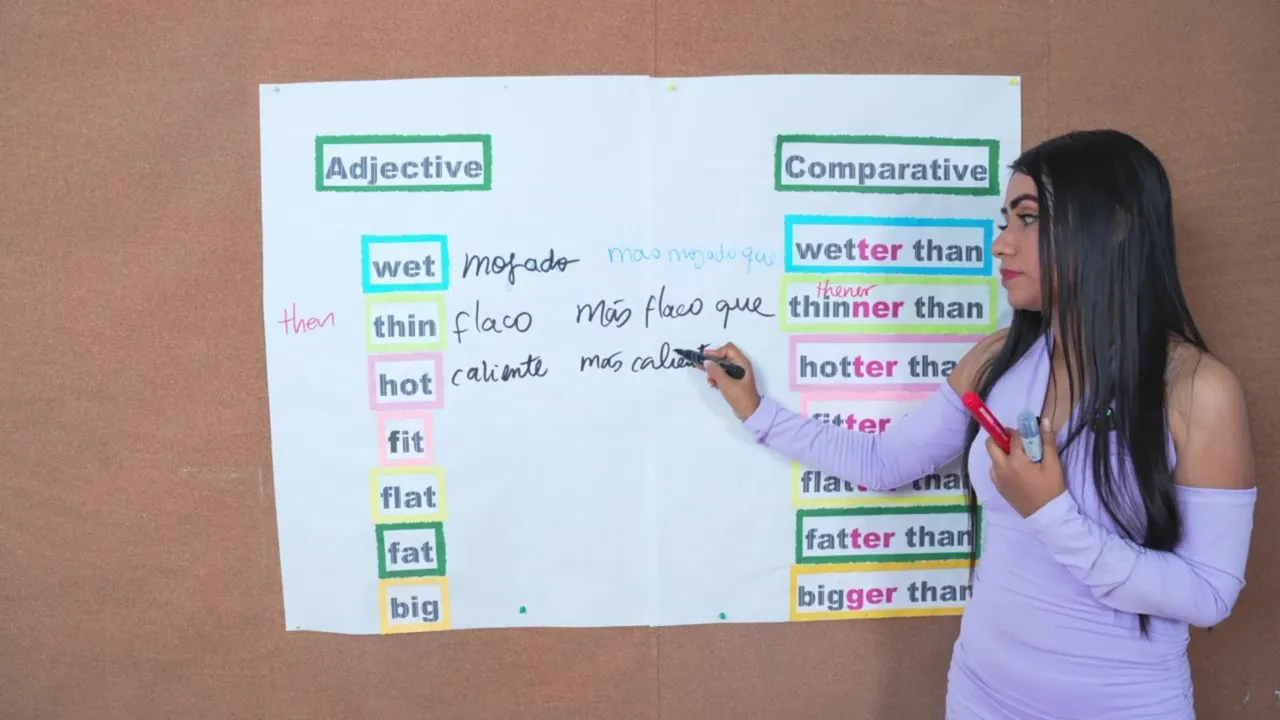 Adjective Comparative
wet mojado mas mojado que wetter than
thener
then thin flaco más flaco que thinner than
hot caliente mas calient hotter tha
fit fitter
flat flatter than
fat fatter than
big bigger than